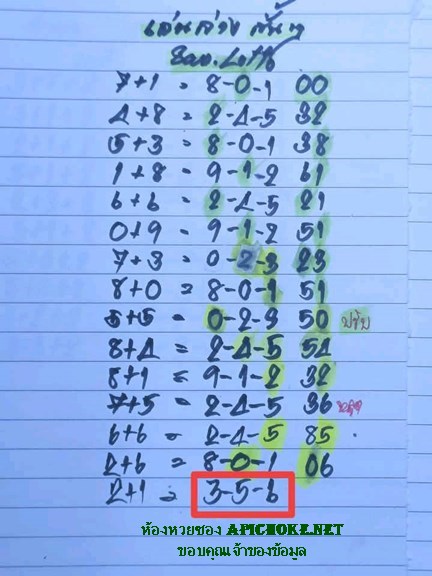 เล่นล่าง สั้นๆ
ธกส. Lotto
7+1 = 8-0-1 00
4+8 = 2-4-5 32
5+3 = 8-0-1 38
1+8 = 9-1-2 61
6+6 = 2-4-5 21
0+9 = 9-1-2 51
7+3 = 0-2-3 23
8+0 = 8-0-1 51
5+5 = 0-2-3 50
8+4 = 2-4-5 54
8+1 = 9-1-2 32
7+5 = 2-4-5 36
6+6 = 2-4-5 85
2+6 = 8-0-1 06
2+1 = 3-5-6
ห้องหวยซอง APICHOKE.NET
ขอบคุณเจ้าของข้อมูล